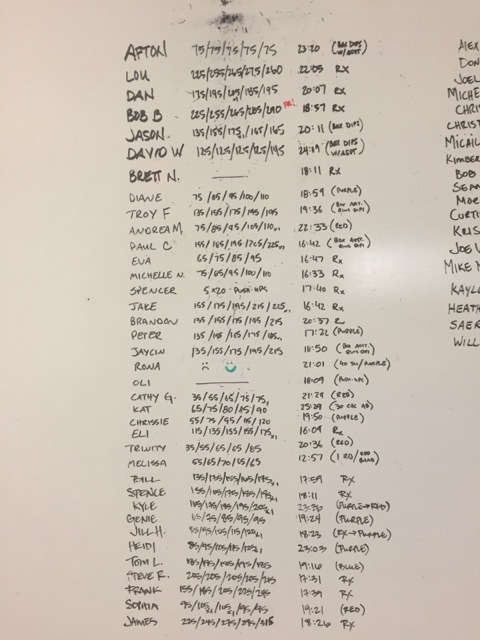 AFTON 75/75/75/75/75 23:20 (BOX DIPS W/ASST)
LOU 225/255/265/275/260 22:05 RX
DAN 175/195/ /185/195 20:07 RX
BOB B 225/255/265/285/290 PR! 18:57 RX
JASON 135/155/175/165/165 20:11 (BOX DIPS)
DAVID W 125/125/125/125/145 24:19 (BOX DIPS W/ASST)
BRETT N. 18:11 RX
DIANE 75/85/95/100/110 18:59 (PURPLE)
TROY F 135/155/175/195/195 19:36 (BOX ASST. RING DIPS)
ANDREA M. 75/85/95/105/110 22:33 (RED)
PAUL C 155/185/195/205/225 16:42 (BOX ASST. RING DIPS)
EVA 65/75/85/95 16:47 Rx
MICHELLE N. 75/85/95/100/110 16:33 Rx
SPENCER 5x20 PUSH-UPS 17:40 Rx
JAKE 155/175/195/215/225 16:42 Rx
BRANDON 135/155/175/195/215 20:37 Rx
PETER 135/155/165/175/185 17:22 (PURPLE)
JAYCIN 135/155/175/195/215 18:50 (BOX ASST. RING DIPS)
RONA 21:01
OLI 18:09 (PUSH-UPS)
CATHY G. 35/55/65/75/75 21:29 (RED)
KAT 65/75/80/85/90 25:29
CHRISSIE 55/75/95/115/120 19:50 (PURPLE)
ELI 115/135/155/155/175 16:09 Rx
TRINITY 35/55/65/65/65 20:36 (RED)
MELISSA 55/65/70/65/65 12:57 (1 RD/
BILL 17:59 Rx
SPENCE 18:11 Rx
KYLE 23:36 (PURPLE→RED)
GENIE 65/75/85/95/95 19:24 (PURPLE)
JILL H. 18:23 (RX→PURPLE)
HEIDI 23:03 (PURPLE)
TOM L. 19:16 (BLUE)
STEVE R. 205/205/205/205/215 17:31 Rx
FRANK 155/185/205/225/245 17:39 Rx
SOPHIA 19:21 (RED)
JAMES 225/245/275/295/315 18:26 Rx
ALEX
DON
JOEL
MICHE
CHRI
CHRIST
MICAIL
KIMBER
BOB
SEAN
MOR
CURTI
KRIS
JOE
MIKE M
KAYL
HEATH
SAER
WILL